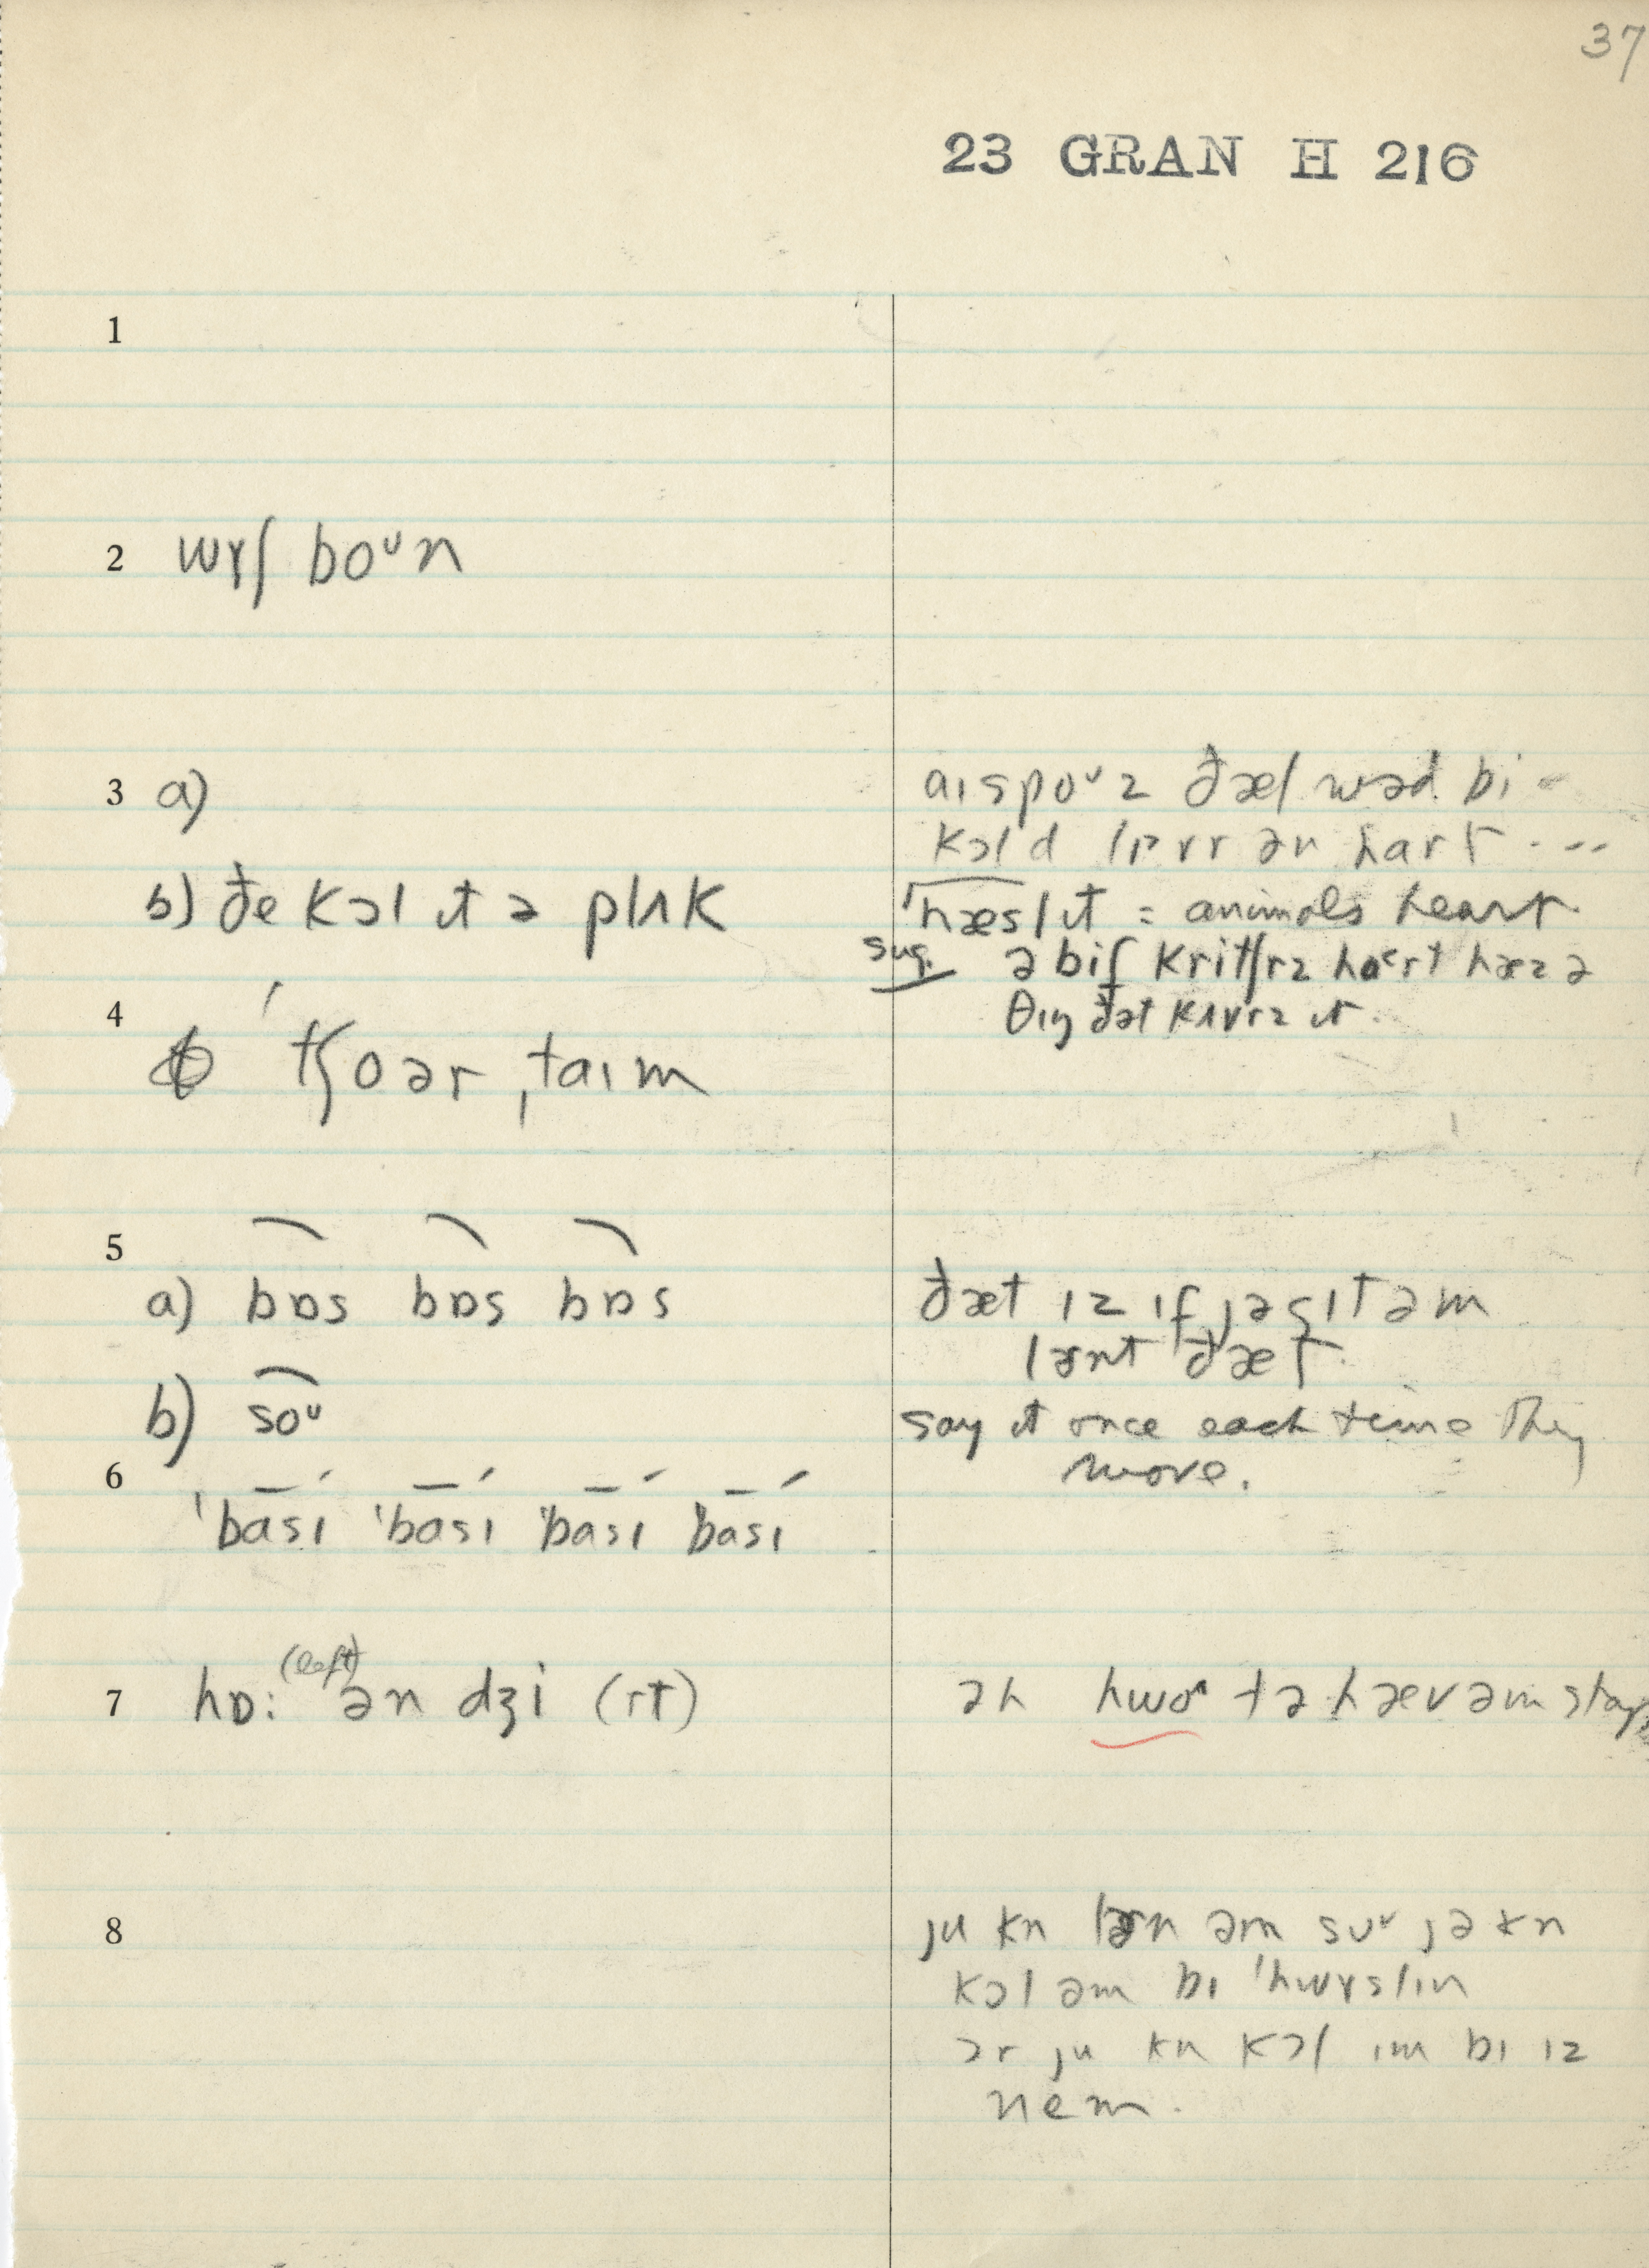 37
23 GRAN H 216
1
2 wɤʃ boᵘn
3 a)
aɪ spoᵘz ðæt wəd bi
kɔld lɪvr ən hart ...
b) ðe kɔl ɪt ə plʌk
ˈhæslɪt = animals heart
sug. ə bif kritʃrz hɑrt hæz ə
θɪŋ ðət kʌvrz ɪt.
4
ˈtʃoər ˌtaɪm
5
a) bɒs bɒs bɒs
ðæt ɪz ɪf jə gɪt əm
lɚnt ðæt.
b) soᵘ
say it once each time they
move.
6
ˈbasɪ ˈbasɪ ˈbasɪ ˈbasɪ
(left)
7 hɒ: ən dʒi (rt)
ən hwoᵃ tə hæv əm stop
8
ju kn lɚn əm soᵘ jə kn
kɔl əm bɪ ˈhwɤslɪn
ɔr ju kn kɔl ɪm bɪ ɪz
nem.